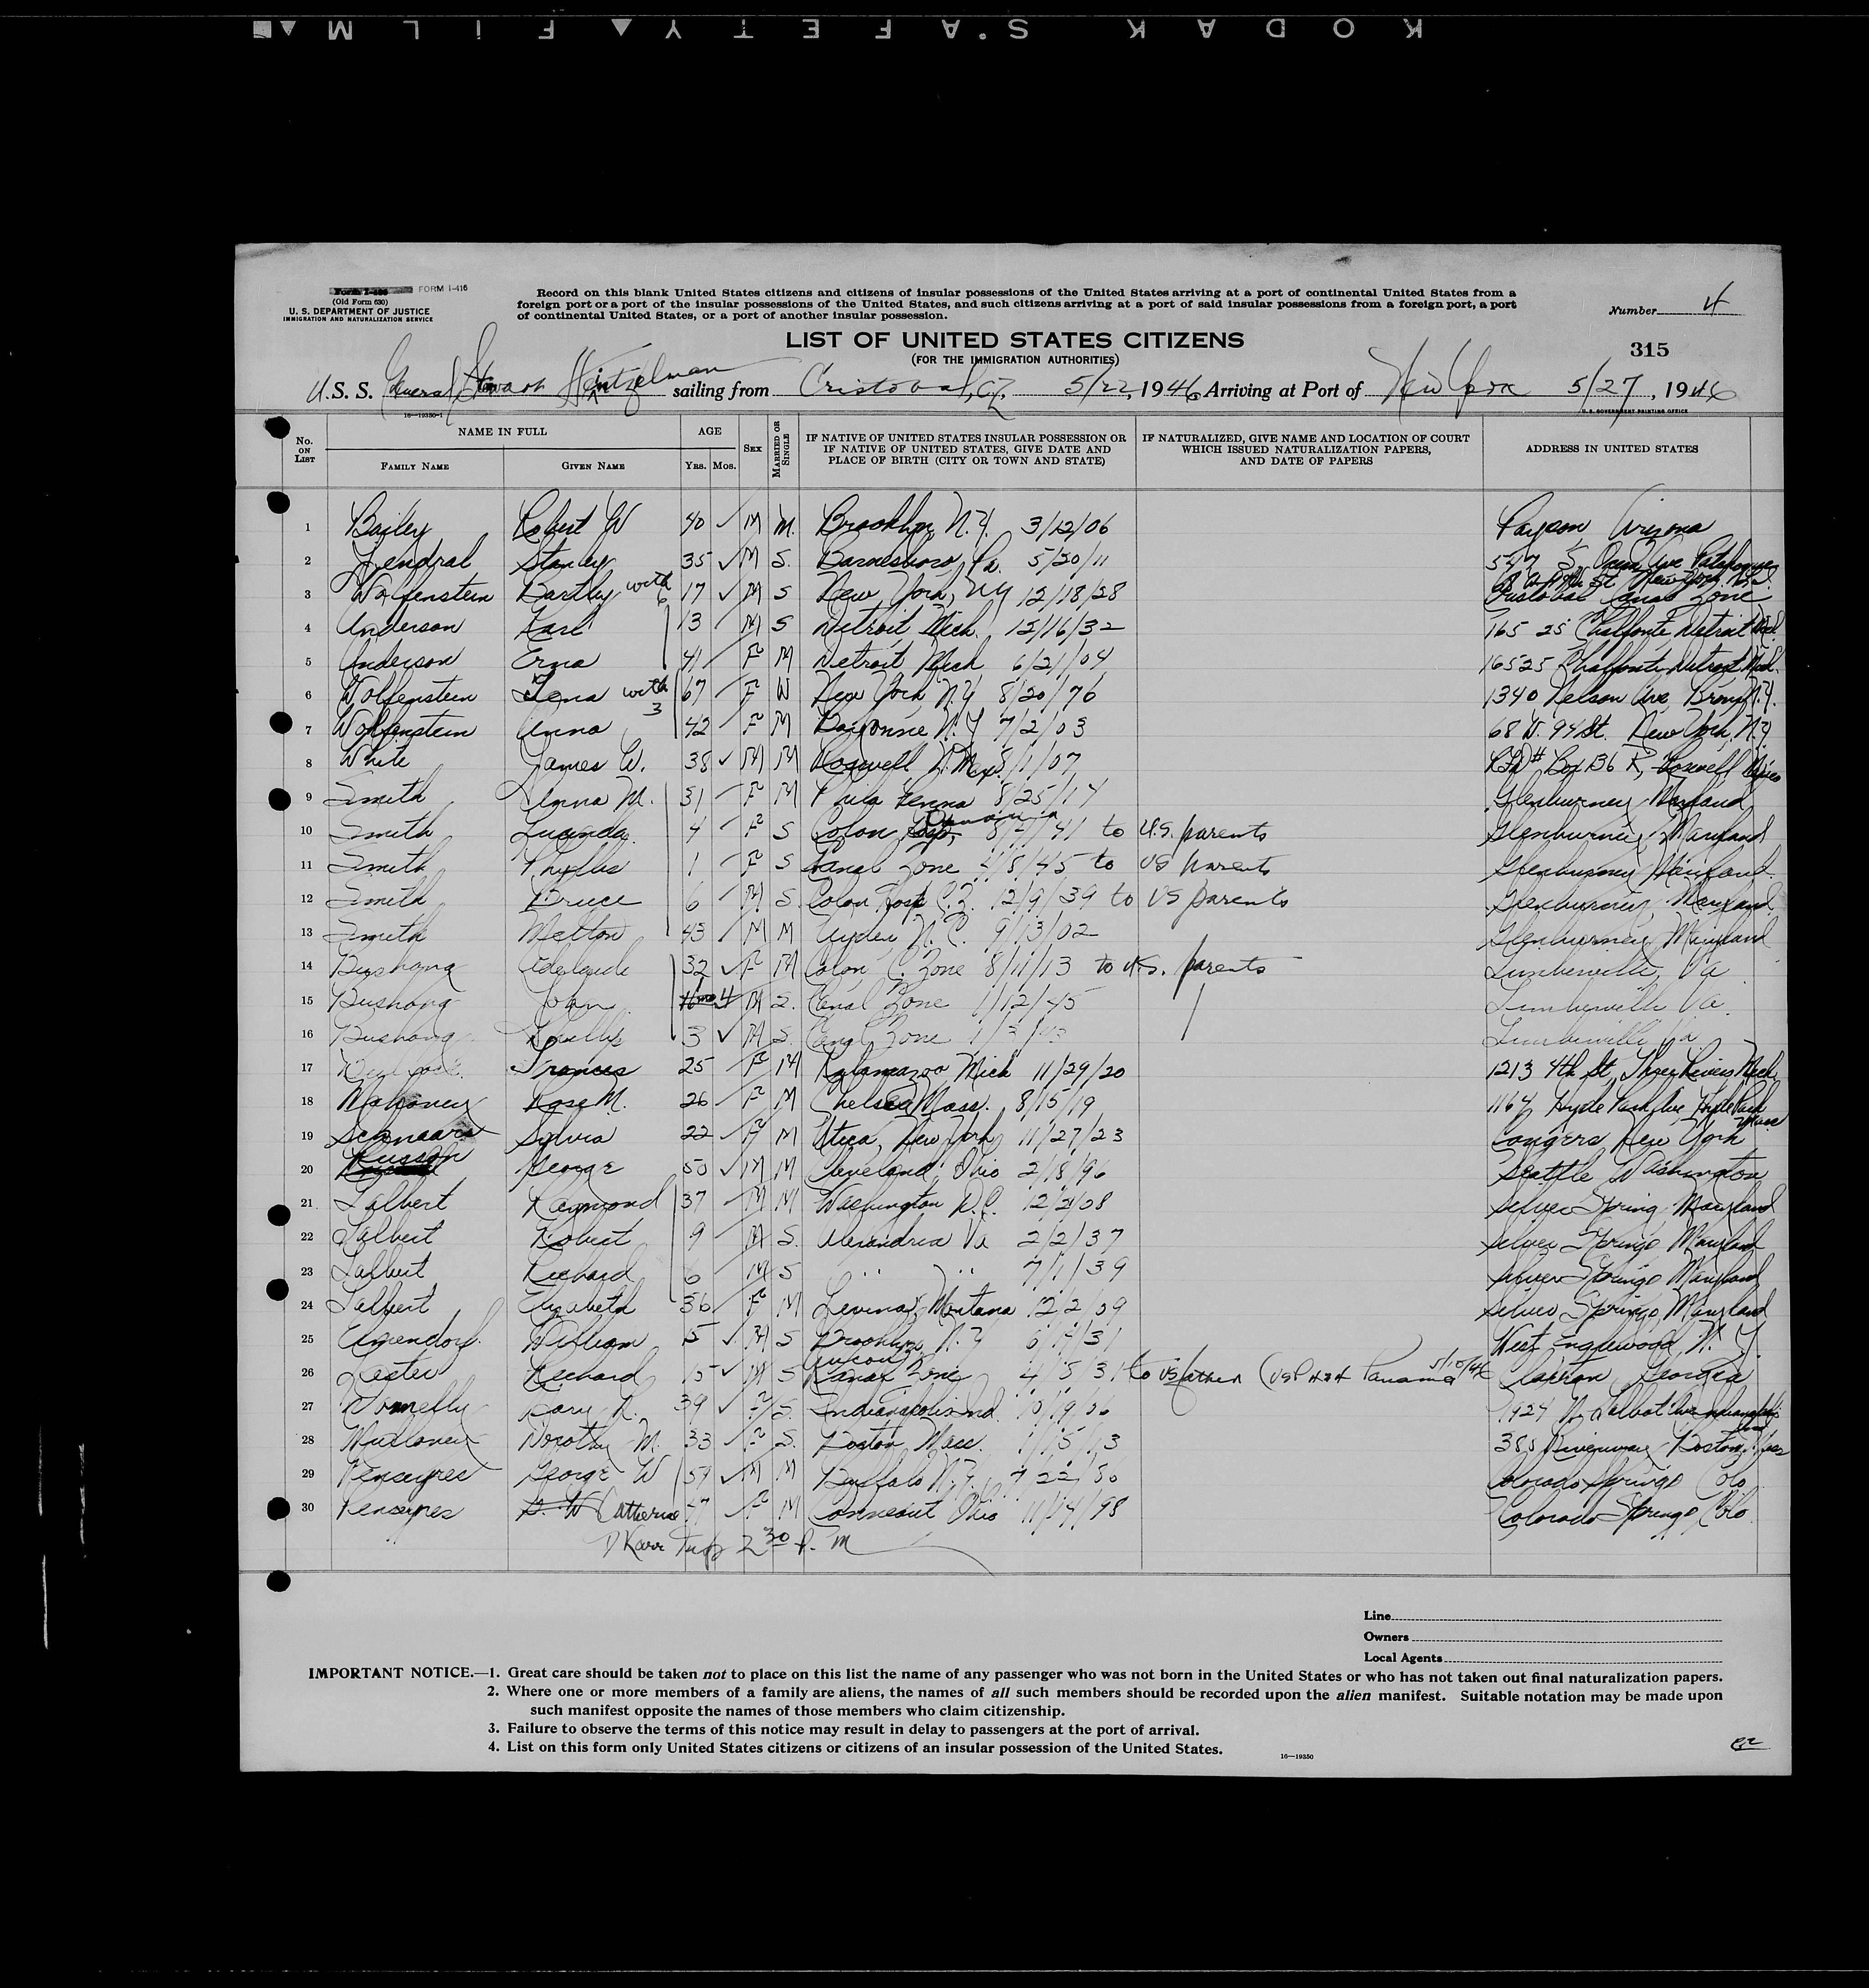 KODAK S'AFETY FILM
Form I-416 FORM I-416
(Old Form 630)
U. S. DEPARTMENT OF JUSTICE
IMMIGRATION AND NATURALIZATION SERVICE
Record on this blank United States citizens and citizens of insular possessions of the United States arriving at a port of continental United States from a
foreign port or a port of the insular possessions of the United States, and such citizens arriving at a port of said insular possessions from a foreign port, a port
of continental United States, or a port of another insular possession.
Number 4
LIST OF UNITED STATES CITIZENS
(FOR THE IMMIGRATION AUTHORITIES)
315
U.S. S. General Stewart Heintzelman sailing from Cristobal, CZ, 5/22, 1946, Arriving at Port of New York 5/27, 1946
16—19350-1 U. S. GOVERNMENT PRINTING OFFICE
No. ON LIST NAME IN FULL FAMILY NAME GIVEN NAME AGE YRS. MOS. SEX MARRIED OR SINGLE
IF NATIVE OF UNITED STATES INSULAR POSSESSION OR IF NATIVE OF UNITED STATES, GIVE DATE AND PLACE OF BIRTH (CITY OR TOWN AND STATE)
IF NATURALIZED, GIVE NAME AND LOCATION OF COURT WHICH ISSUED NATURALIZATION PAPERS, AND DATE OF PAPERS
ADDRESS IN UNITED STATES
1 Bailey Robert W 40 M M. Brooklyn, N.Y. 3/12/06 Payson, Arizona
2 Stanley 35 M S. Barnesboro, Pa. 5/30/11 Ave Patchogue
3 Wolfenstein Bartley with 6 17 M S New York, NY 12/18/28 New York Cristobal Canal Zone
4 Anderson Karl 13 M S Detroit Mich. 12/16/32 165 25 Chalfonte Detroit Mich.
5 Anderson Erna 41 F M Detroit Mich 6/21/04 16525 Chalfonte Detroit Mich.
6 Wolfenstein Lena with 3 67 F W New York N.Y. 8/20/76 1340 Nelson Ave, Bronx N.Y.
7 Wolfenstein Anna 42 F M Bayonne N.Y 7/2/03 68 W. 94 St. New York, N.Y
8 White James W. 38 M M Roswell N. Mex. 8/1/07 Box 136 R, Roswell
9 Smith Anna M. 31 F M Phila Penna 8/25/14 Glenburney Maryland
10 Smith Lucinda 4 F S Colon Panama 41 to U.S. parents Glenburney, Maryland
11 Smith Phyllis 1 F S Canal Zone 4/8/45 to US parents Glenburney Maryland
12 Smith Bruce 6 M S. Colon Hosp C.Z. 12/9/39 to US parents Glenburney, Maryland
13 Smith Melton 43 M M Ayden N. C. 9/13/02 Glenburney Maryland
14 Bushong Adelaide 32 F M Colon, C. Zone 8/11/13 to U.S. parents Timberville, Va
15 Bushong John M S. Canal Zone 1/12/45 Timberville Va.
16 Bushong Phillip 3 M S. Canal Zone 1/3/43 Timberville Va.
17 Frances 25 F M Kalamazoo Mich 11/29/20 1213 4th St, Three Rivers Mich
18 Mahoney Rose M. 26 F M Chelsea Mass. 8/15/19 1164 Hyde Park Ave Hyde Park Mass
19 Sylvia 22 F M Utica, New York 11/27/23 Congers New York
20 Husson George 50 M M Cleveland Ohio 2/18/96 Seattle Washington
21 Talbert Raymond 37 M M Washington D.C. 12/2/08 Silver Spring Maryland
22 Talbert Robert 9 M S. Alexandria Va 2/2/37 Silver Springs Maryland
23 Talbert Richard 6 M S " " 7/1/39 Silver Springs Maryland
24 Talbert Elizabeth 36 F M Levina, Montana 12/2/09 Silver Springs Maryland
25 William 15 M S Brooklyn N.Y 31 West Englewood, N. J.
26 Lester Richard 15 M S Ancon Canal Zone 4/5/31 to US father Panama Claxton Georgia
27 Donnelly 39 F S. Indianapolis Ind. 10/19/06 Talbot Ave Indianapolis
28 Mulloney Dorothy M. 33 F S. Boston, Mass. 1/15/13 Riverway Boston, Mass
29 Penceyres George W 59 M M Buffalo N.Y. 7 22/86 Colorado Springs Colo
30 Penceyres G. W Catherine 47 F M Conneaut Ohio 11/14/98 Colorado Springs, Colo
2 30 P. M
Line
Owners
Local Agents
IMPORTANT NOTICE.—1. Great care should be taken not to place on this list the name of any passenger who was not born in the United States or who has not taken out final naturalization papers.
2. Where one or more members of a family are aliens, the names of all such members should be recorded upon the alien manifest. Suitable notation may be made upon
such manifest opposite the names of those members who claim citizenship.
3. Failure to observe the terms of this notice may result in delay to passengers at the port of arrival.
4. List on this form only United States citizens or citizens of an insular possession of the United States.
16—19350